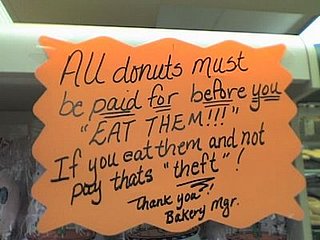 All donuts must
be paid for before you
"EAT THEM!!!"
If you eat them and not
pay thats "theft"!
Thank you?!
Bakery Mgr.